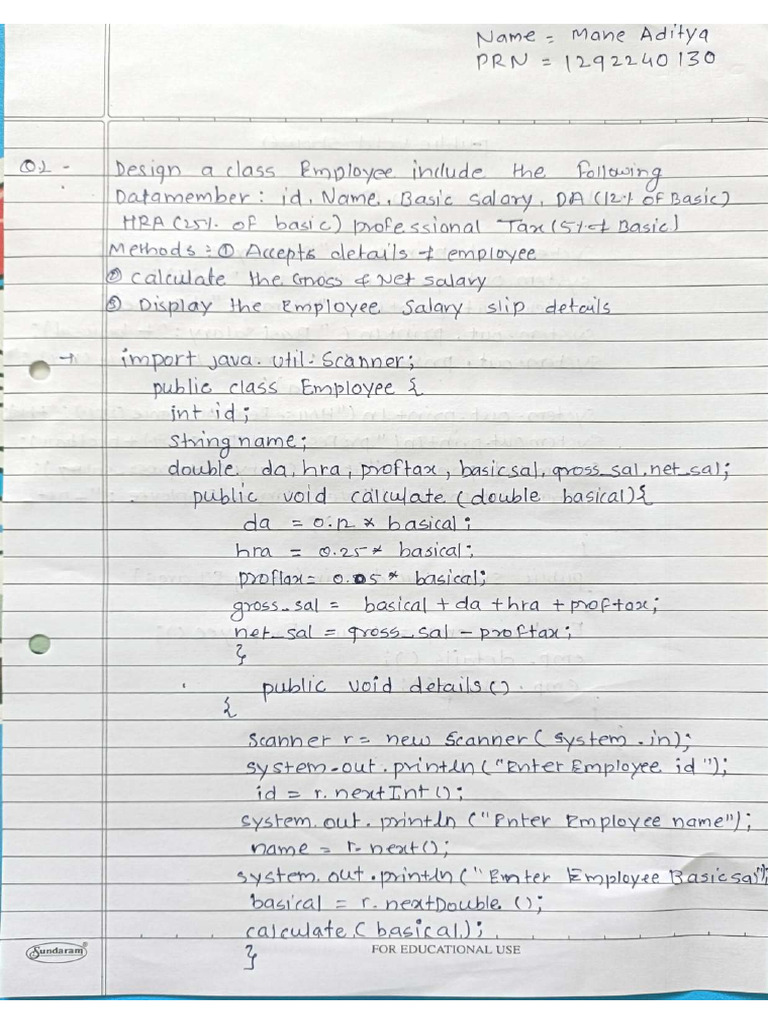 Name = Mane Aditya
PRN = 1292240130
Q.1 - Design a class Employee include the following
Datamember : id, Name, Basic Salary, DA (12% of Basic)
HRA (25% of basic) professional Tax (5% of Basic)
Methods : ① Accepts details of employee
② calculate the Gross & Net salary
③ Display the Employee Salary slip details
→ import java.util.Scanner;
public class Employee {
int id;
String name;
double da, hra, proftax, basicsal, gross_sal, net_sal;
public void calculate (double basical){
da = 0.12 * basical;
hra = 0.25 * basical;
proftax = 0.05 * basical;
gross_sal = basical + da + hra + proftax;
net_sal = gross_sal - proftax;
}
public void details()
{
Scanner r = new Scanner (System.in);
system.out.println ("Enter Employee id");
id = r.nextInt ();
system.out.println ("Enter Employee name");
name = r.next();
system.out.println ("Enter Employee Basicsal");
basical = r.nextDouble ();
calculate (basical);
}
Sundaram®
FOR EDUCATIONAL USE